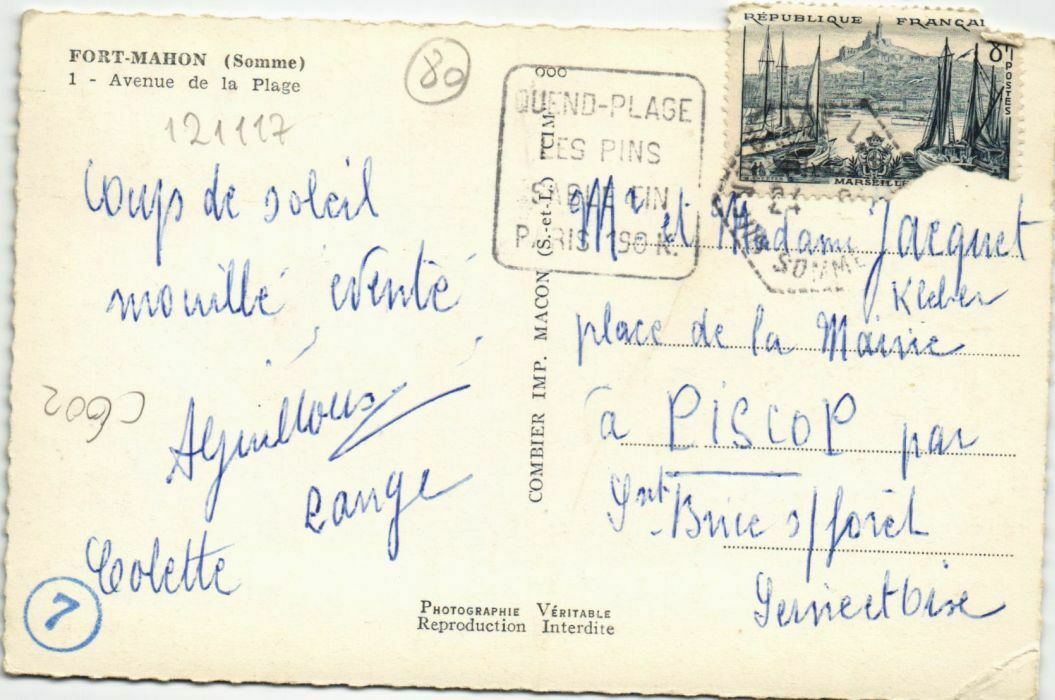 FORT-MAHON (Somme)
1 - Avenue de la Plage
80
121117
Coups de soleil
mouillé éventé
C602
Lange
Colette
7
COMBIER IMP. MACON (S.-et-L.) "CIM"
QUEND-PLAGE
LES PINS
SABLE FIN
PARIS 190 K.
RÉPUBLIQUE FRANÇAI
8f
POSTES
MARSEILLE
24
SOMME
Mr et Madame Jacquet
Kleber
place de la Mairie
à PISCOP par
Snt Brice s/forêt
Seine et Oise
PHOTOGRAPHIE VÉRITABLE
Reproduction Interdite